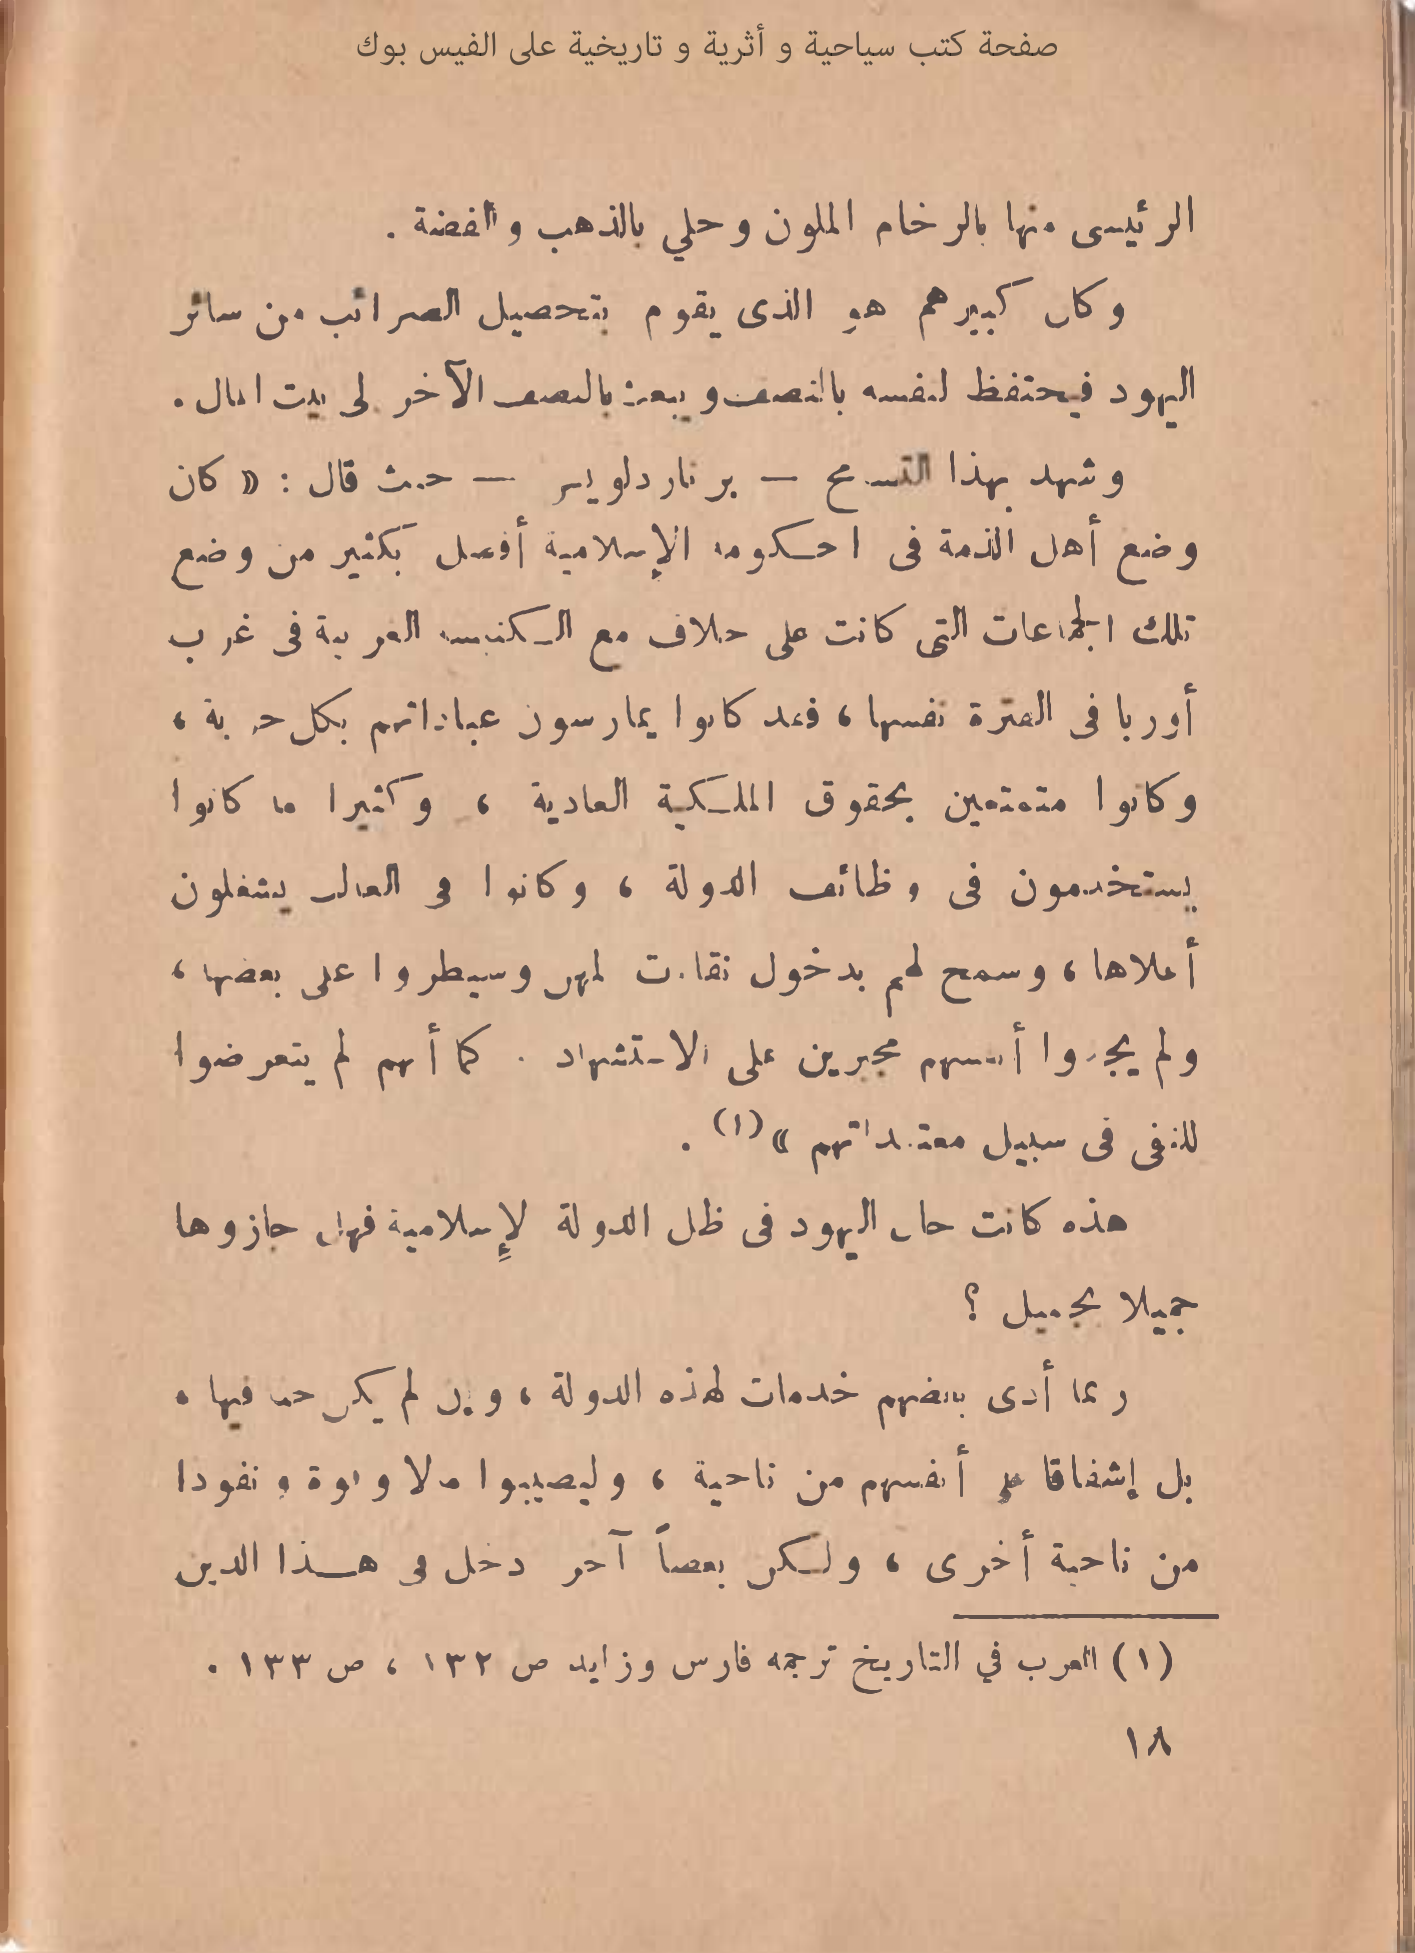 صفحة كتب سياحية و أثرية و تاريخية على الفيس بوك
الرئيسى منها بالرخام الملون وحلي بالذهب والفضة .
وكان كبيرهم هو الذى يقوم بتحصيل الضرائب من سائر
اليهود فيحتفظ لنفسه بالنصف ويبعث بالنصف الآخر إلى بيت المال .
وشهد بهذا التسامح — برنارد لويس — حيث قال : « كان
وضع أهل الذمة فى الحكومة الإسلامية أفضل بكثير من وضع
تلك الجماعات التى كانت على خلاف مع الكنيسة الغربية فى غرب
أوربا فى الفترة نفسها ، فقد كانوا يمارسون عباداتهم بكل حرية ،
وكانوا متمتعين بحقوق الملكية العادية ، وكثيرا ما كانوا
يستخدمون فى وظائف الدولة ، وكانوا فى الغالب يشغلون
أعلاها ، وسمح لهم بدخول نقابات المهن وسيطروا على بعضها ،
ولم يجدوا أنفسهم مجبرين على الاستشهاد . كما أنهم لم يتعرضوا
للنفى فى سبيل معتقداتهم » (١) .
هذه كانت حال اليهود فى ظل الدولة الإسلامية فهل جازوها
جميلا بجميل ؟
ربما أدى بعضهم خدمات لهذه الدولة ، وإن لم يكن حبا فيها .
بل إشفاقا على أنفسهم من ناحية ، وليصيبوا مالا وقوة ونفوذا
من ناحية أخرى ، ولكن بعضاً آخر دخل فى هذا الدين
(١) العرب في التاريخ ترجمة فارس وزايد ص ١٣٢ ، ص ١٣٣ .
١٨